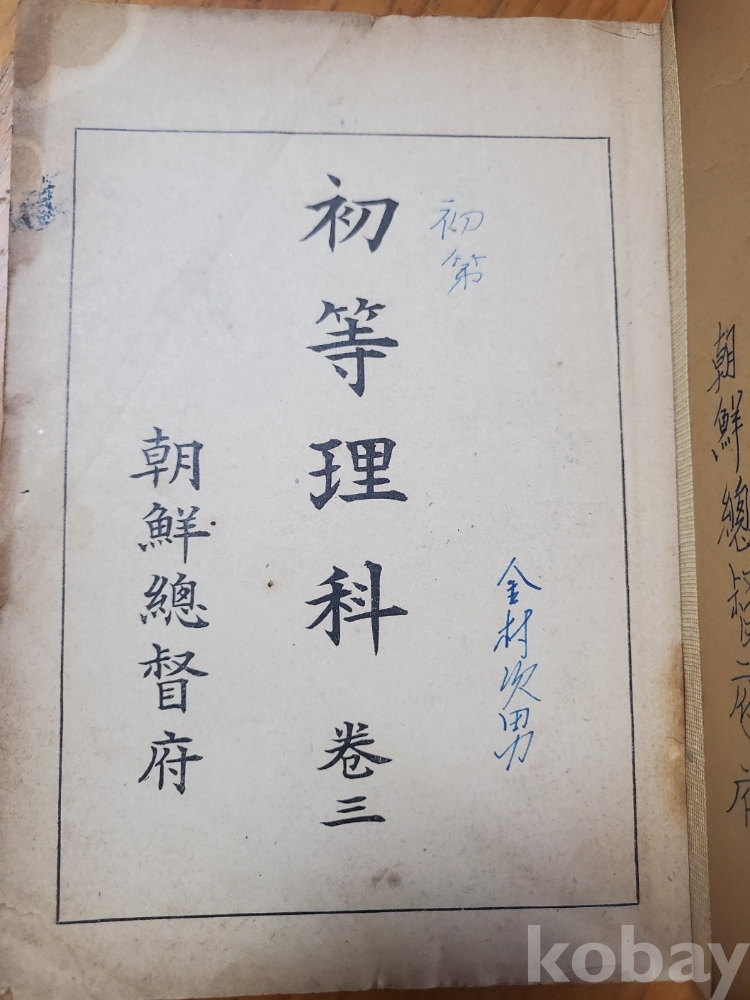 朝鮮總督府
初第
金村次男
初等理科 卷三
朝鮮總督府
kobay